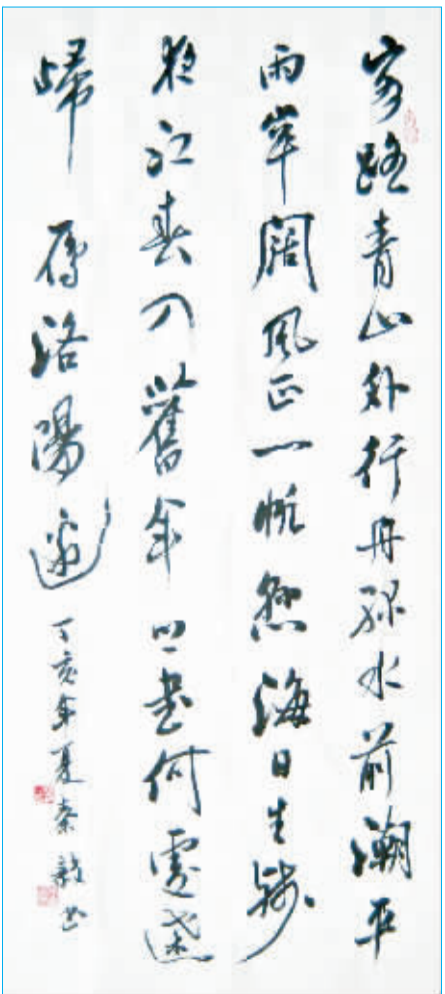 客路青山外行舟綠水前潮平
兩岸闊風正一帆懸海日生殘
夜江春入舊年鄉書何處達
歸雁洛陽邊 丁亥年夏秦毅書